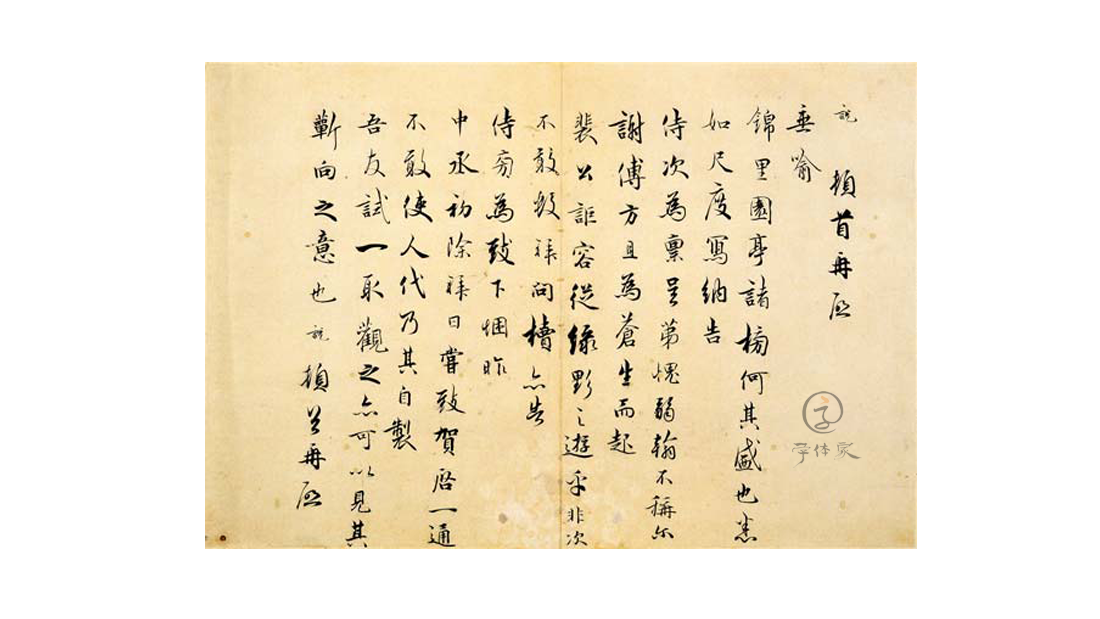 說 頓首再啟
垂喻
錦里園亭諸榜何其盛也悉
如尺度寫納告
侍次為稟呈第愧弱翰不稱尔
謝傅方且為蒼生而起
裴公詎容從綠野之遊乎非次
不敢輒拜問檀亦告
侍旁為致下悃昨
中丞初除拜日嘗致賀啓一通
不敢使人代乃其自製
吾友試一取觀之亦可以見其
蘄向之意也說頓首再啟
字体家